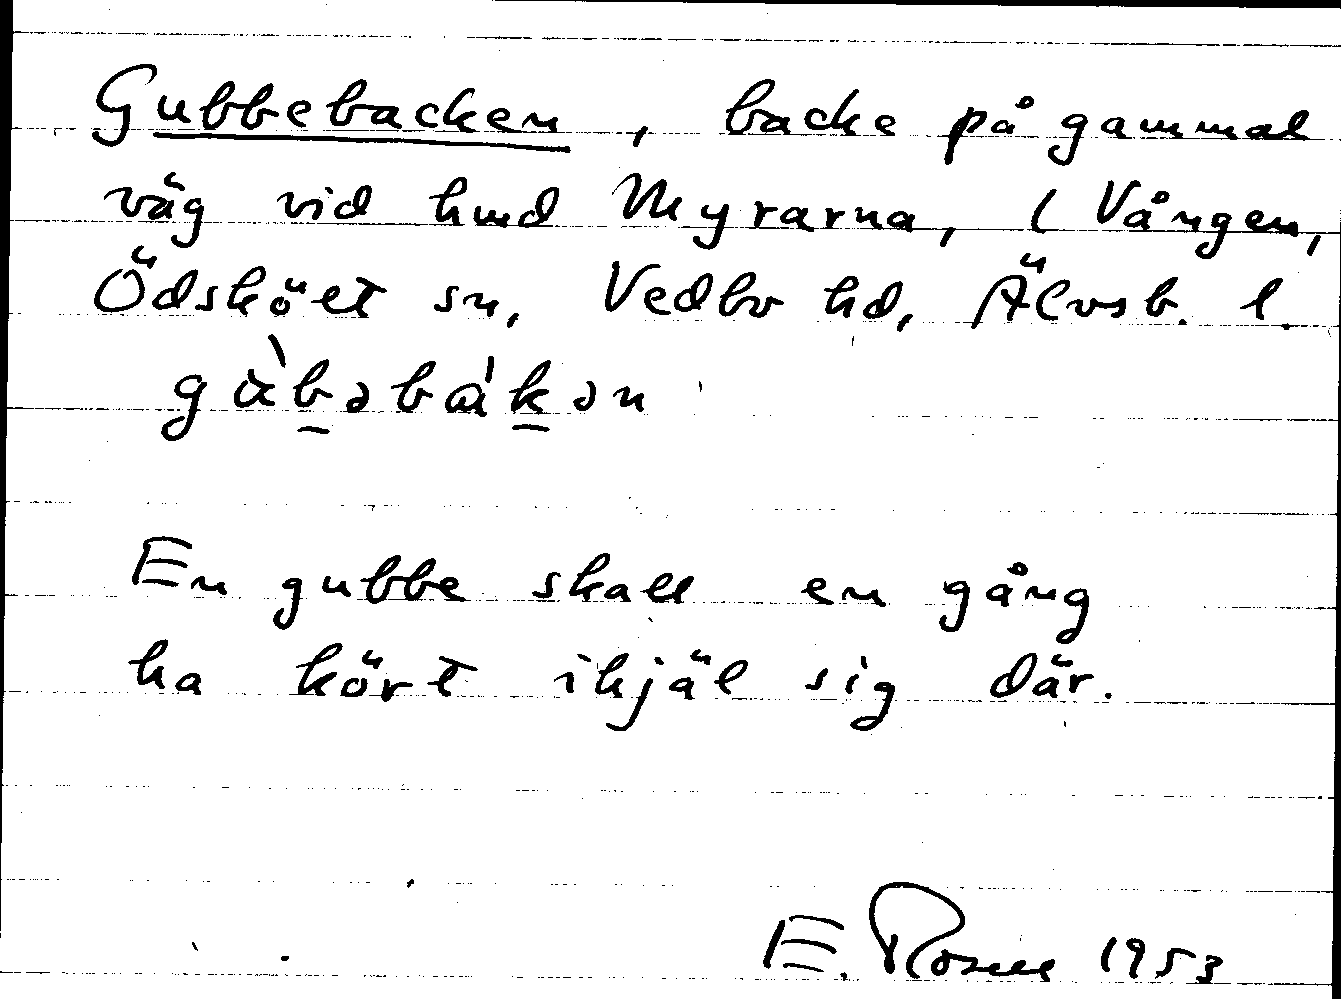 Gubbebacken, backe på gammal
väg vid hmd Myrarna, (Vången,
Ödsköet sn, Vedbo hd, Älvsb. l.
gu̇̀bəbákən
En gubbe skall en gång
ha kört ihjäl sig där.
E. Rosell 1953